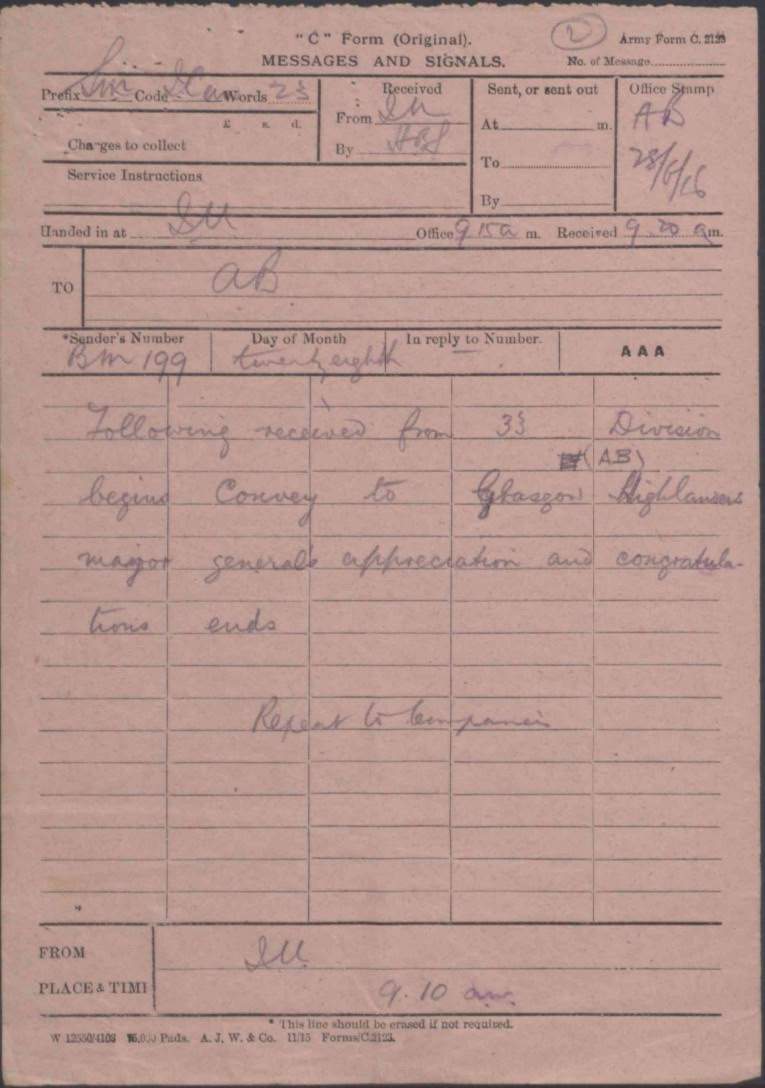 "C" Form (Original). 2 Army Form C. 2123
MESSAGES AND SIGNALS. No. of Message
Prefix Sm Code Words 23 Received Sent, or sent out Office Stamp
£ s. d. From At m. AB
Charges to collect By To 28/6/16
Service Instructions By
Handed in at Office 9 15a m. Received 9.20 am.
TO AB
*Sender's Number Day of Month In reply to Number. AAA
BM 199 twentyeighth —
Following received from 33 Division
(AB)
begins Convey to Glasgow Highlanders
major general's appreciation and congratula-
tions ends
Repeat to Companies
FROM
PLACE & TIME 9.10 am
* This line should be erased if not required.
W 12550/4103 Pads. A. J. W. & Co. 11/15 Forms/C.2123.